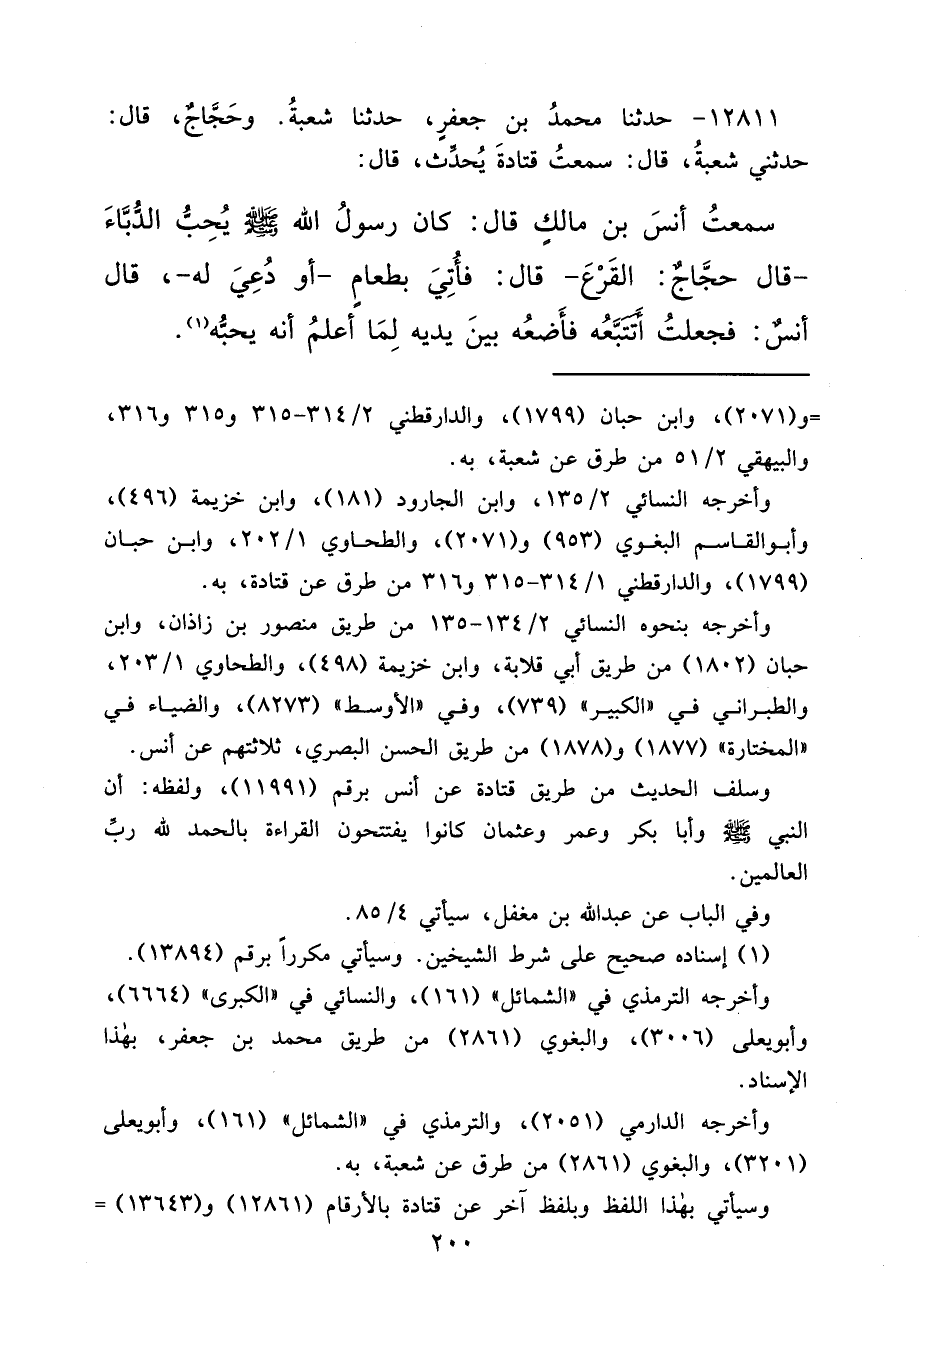 ١٢٨١١- حدثنا محمدُ بن جعفرٍ، حدثنا شعبةُ. وحَجَّاجٌ، قال:
حدثني شعبةُ، قال: سمعتُ قتادةَ يُحدِّث، قال:
سمعتُ أنسَ بن مالكٍ قال: كان رسولُ الله ﷺ يُحِبُّ الدُّبَّاءَ
-قال حجَّاجٌ: القَرْعَ- قال: فأُتِيَ بطعامٍ -أو دُعِيَ له-، قال
أنسٌ: فجعلتُ أَتَتَبَّعُه فأَضعُه بينَ يديه لِمَا أعلمُ أنه يحبُّه(١).
=و(٢٠٧١)، وابن حبان (١٧٩٩)، والدارقطني ٣١٤/٢-٣١٥ و٣١٥ و٣١٦،
والبيهقي ٥١/٢ من طرق عن شعبة، به.
وأخرجه النسائي ١٣٥/٢، وابن الجارود (١٨١)، وابن خزيمة (٤٩٦)،
وأبوالقاسم البغوي (٩٥٣) و(٢٠٧١)، والطحاوي ٢٠٢/١، وابن حبان
(١٧٩٩)، والدارقطني ٣١٤/١-٣١٥ و٣١٦ من طرق عن قتادة، به.
وأخرجه بنحوه النسائي ١٣٤/٢-١٣٥ من طريق منصور بن زاذان، وابن
حبان (١٨٠٢) من طريق أبي قلابة، وابن خزيمة (٤٩٨)، والطحاوي ٢٠٣/١،
والطبراني في «الكبير» (٧٣٩)، وفي «الأوسط» (٨٢٧٣)، والضياء في
«المختارة» (١٨٧٧) و(١٨٧٨) من طريق الحسن البصري، ثلاثتهم عن أنس.
وسلف الحديث من طريق قتادة عن أنس برقم (١١٩٩١)، ولفظه: أن
النبي ﷺ وأبا بكر وعمر وعثمان كانوا يفتتحون القراءة بالحمد لله ربِّ
العالمين.
وفي الباب عن عبدالله بن مغفل، سيأتي ٨٥/٤.
(١) إسناده صحيح على شرط الشيخين. وسيأتي مكرراً برقم (١٣٨٩٤).
وأخرجه الترمذي في «الشمائل» (١٦١)، والنسائي في «الكبرى» (٦٦٦٤)،
وأبويعلى (٣٠٠٦)، والبغوي (٢٨٦١) من طريق محمد بن جعفر، بهٰذا
الإسناد.
وأخرجه الدارمي (٢٠٥١)، والترمذي في «الشمائل» (١٦١)، وأبويعلى
(٣٢٠١)، والبغوي (٢٨٦١) من طرق عن شعبة، به.
وسيأتي بهٰذا اللفظ وبلفظ آخر عن قتادة بالأرقام (١٢٨٦١) و(١٣٦٤٣) =
٢٠٠